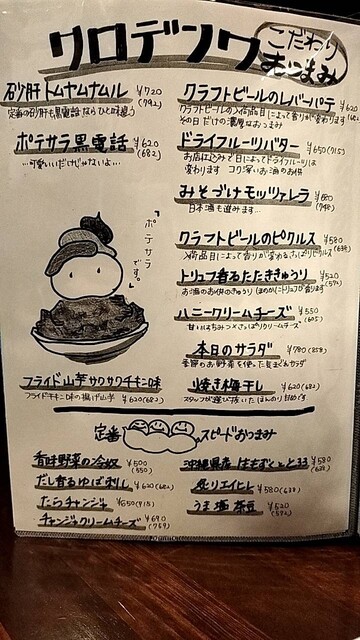 クロデンワ
こだわり
おつまみ
砂肝トムナムナムル ¥720
(792)
定番の砂肝も黒電話ならひと味違う
ポテサラ黒電話 ¥620
(682)
…可愛いいだけじゃないよ…
『ポテサラです。』
フライド山芋サクサクチキン味
フライドチキン味の揚げ山芋 ¥620(682)
クラフトビールのレバーパテ ¥620
クラフトビールの入荷品目によって香りが変わります
その日だけの濃厚なおつまみ
ドライフルーツバター ¥650(715)
お店仕込みで日によってドライフルーツは
変わります コリ深いお酒のお供
みそづけモッツァレラ ¥680
(748)
日本酒も進みます…
クラフトビールのピクルス ¥580
(638)
トリュフ香るたたききゅうり ¥520
(572)
お酒のお供のきゅうり ほのかにトリュフが香ります
ハニークリームチーズ ¥550
(605)
甘いはちみつ×さっぱりクリームチーズ
本日のサラダ ¥780(858)
季節のお野菜を使った気まぐれサラダ
焼き梅干し ¥620(682)
スタッフが選び抜いたほんのり甘めです
定番 スピードおつまみ
香味野菜の冷奴 ¥500
(550)
だし香るゆば刺し ¥620(682)
たらチャンジャ ¥650(715)
チャンジャクリームチーズ ¥690
(759)
沖縄県産 はちずとと33 ¥580
(638)
炙りエイヒレ ¥580(638)
うま塩 茶豆 ¥520
(572)